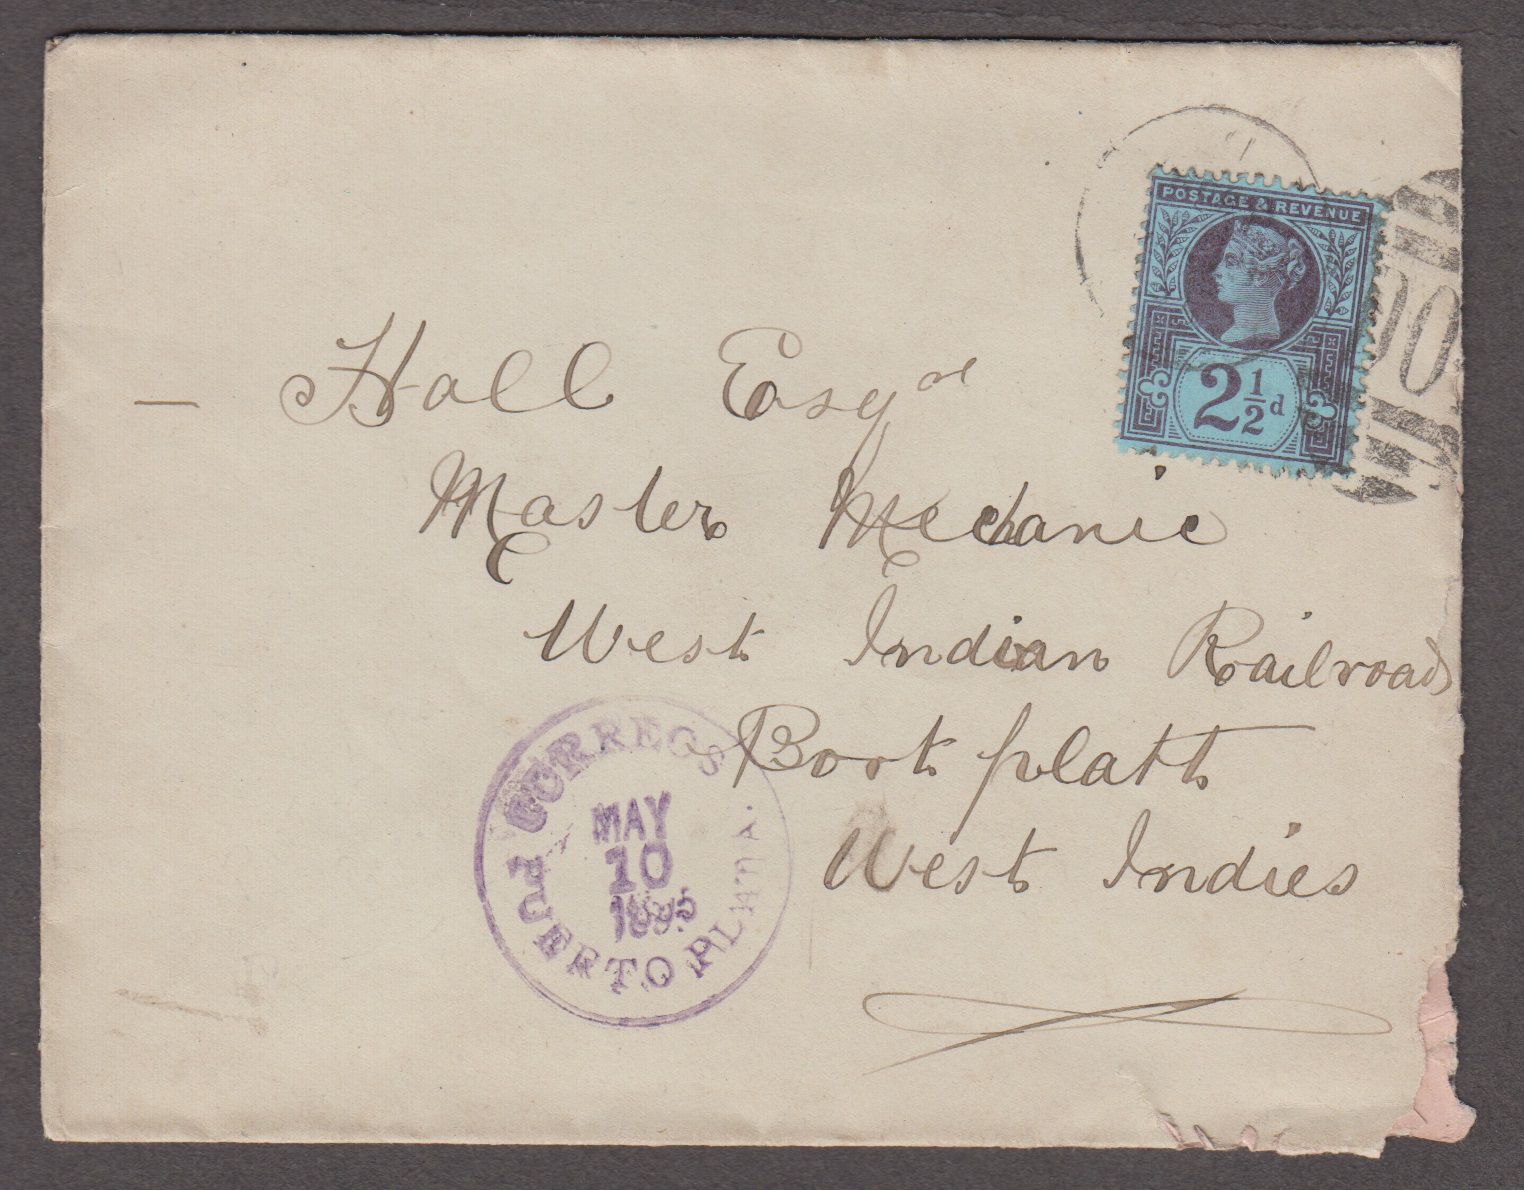 POSTAGE & REVENUE
2½d
00
— Hall Esqre
Master Mechanic
West Indian Railroad
Port platt
West Indies
CORREOS
MAY
10
1895
PUERTO PLATA.